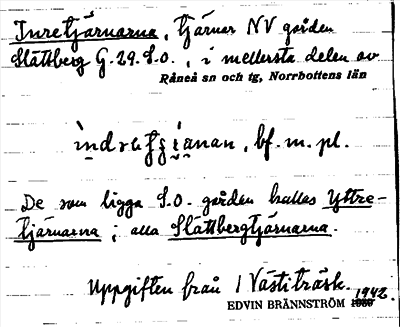 Inretjärnarna, tjärnar NV gården
Slättberg G.29. S.O., i mellersta delen av
Råneå sn och tg, Norrbottens län
bf. m. pl.
De som ligga S.O. gården kallas Yttre-
tjärnarna; alla Slättbergtjärnarna.
Uppgiften från 1 Västiträsk.
EDVIN BRÄNNSTRÖM 1942.